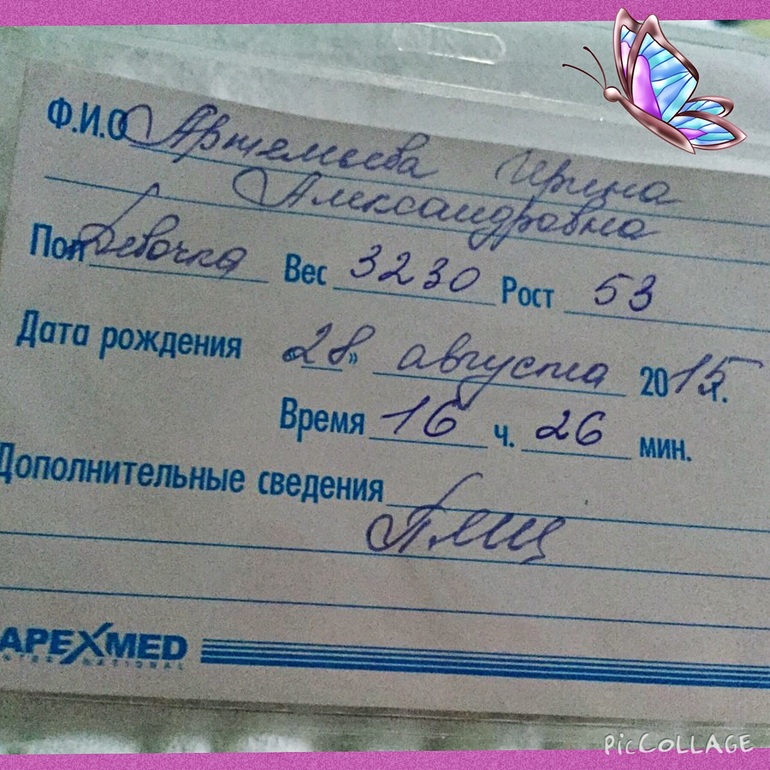 Ф.И.О Артемьева Ирина
Александровна
Пол Девочка Вес 3230 Рост 53
Дата рождения 28 » августа 2015 г.
Время 16 ч. 26 мин.
Дополнительные сведения
APEXMED
INTERNATIONAL
PICCOLLAGE